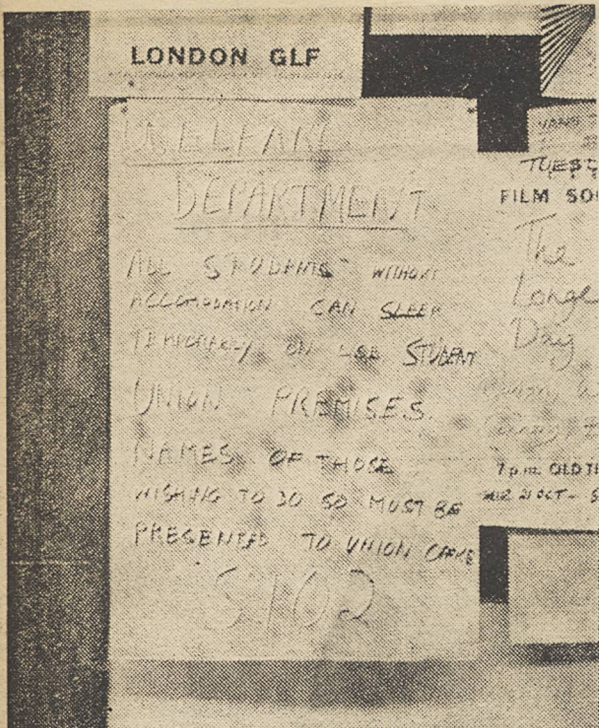 LONDON GLF
WELFARE
DEPARTMENT
ALL STUDENTS WITHOUT
ACCOMODATION CAN SLEEP
TEMPORARILY ON LSE STUDENT
UNION PREMISES.
NAMES OF THOSE
WISHING TO DO SO MUST BE
PRESENTED TO UNION OFFICE
S102
TUES
FILM SO
The
Longe
Day
7 p.m. OLD TH
21 OCT - S